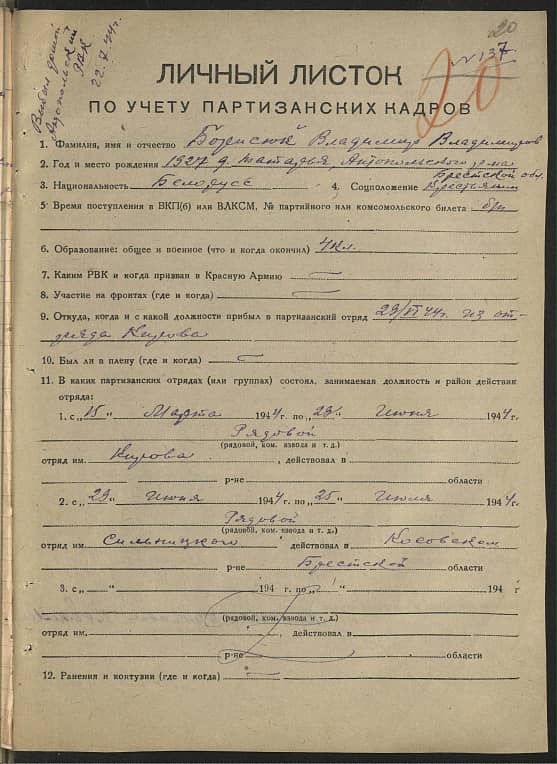 20
№ 137
20
Выбыл домой
Антопольский
РВК
22.7.44г.
ЛИЧНЫЙ ЛИСТОК
ПО УЧЕТУ ПАРТИЗАНСКИХ КАДРОВ
1. Фамилия, имя и отчество Владимир Владимиров
2. Год и место рождения 1927 д. Антопольского р-на
Брестской обл.
3. Национальность Белорусс 4. Соцположение Крестьянин
5 Время поступления в ВКП(б) или ВЛКСМ, № партийного или комсомольского билета б/п
6. Образование: общее и военное (что и когда окончил) 4 кл.
7. Каким РВК и когда призван в Красную Армию —
8. Участие на фронтах (где и когда) —
9. Откуда, когда и с какой должности прибыл в партизанский отряд 23/VI 44г. из от-
ряда Кирова
10. Был ли в плену (где и когда) —
11. В каких партизанских отрядах (или группах) состоял, занимаемая должность и район действия
отряда:
1. с „15" Марта 1944 г. по „23" Июня 1944 г.
Рядовой
(рядовой, ком. взвода и т. д.)
отряд им. Кирова, действовал в
р-не области
2. с „23" Июня 1944 г. по „25" Июля 1944 г.
Рядовой
(рядовой, ком. взвода и т. д.)
отряд им. Сильницкого действовал в Косовском
р-не Брестской области
3. с „ " 194 г. по „ " 194 г
(рядовой, ком. взвода и т. д.)
отряд им. , действовал в
р-не области
12. Ранения и контузии (где и когда) —